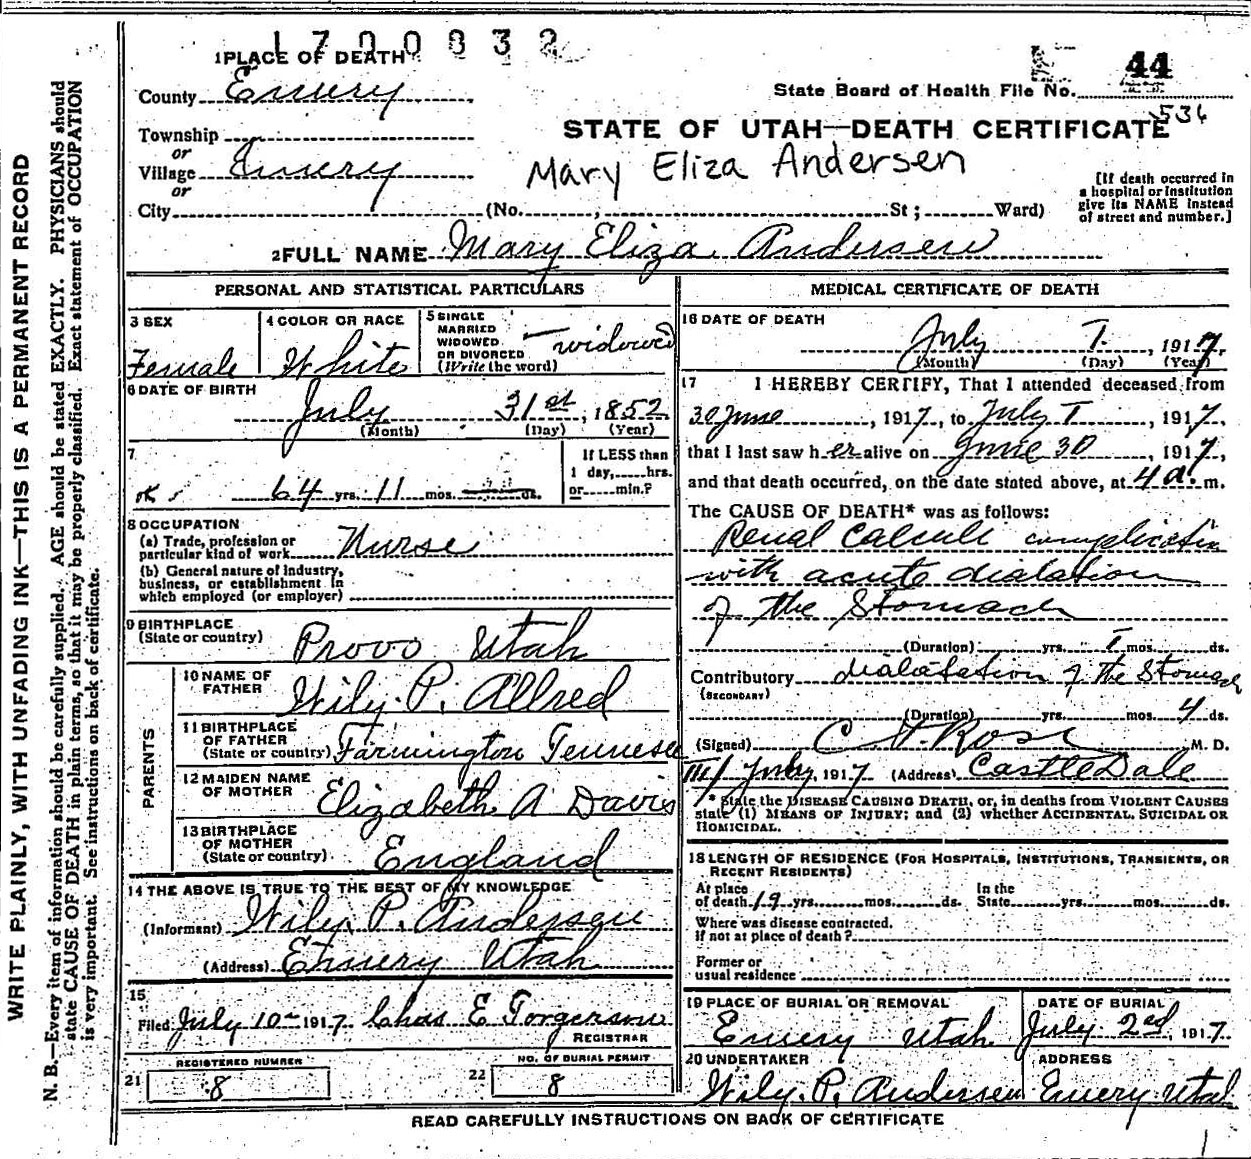 1700832
1 PLACE OF DEATH
County Emery
State Board of Health File No. 44
536
Township
or
Village Emery
or
STATE OF UTAH—DEATH CERTIFICATE
Mary Eliza Andersen
[If death occurred in
a hospital or institution
give its NAME instead
of street and number.]
City (No. , St ; Ward)
2 FULL NAME Mary Eliza Andersen
PERSONAL AND STATISTICAL PARTICULARS
3 SEX
Female
4 COLOR OR RACE
White
5 SINGLE
MARRIED
WIDOWED
OR DIVORCED
(Write the word)
widowed
6 DATE OF BIRTH
July 31st, 1852
(Month) (Day) (Year)
7
64 yrs. 11 mos. ds.
If LESS than
1 day, hrs.
or min.?
8 OCCUPATION
(a) Trade, profession or
particular kind of work Nurse
(b) General nature of industry,
business, or establishment in
which employed (or employer)
9 BIRTHPLACE
(State or country) Provo Utah
PARENTS
10 NAME OF
FATHER Wily. P. Allred
11 BIRTHPLACE
OF FATHER
(State or country) Farmington Tennesee
12 MAIDEN NAME
OF MOTHER Elizabeth A Davis
13 BIRTHPLACE
OF MOTHER
(State or country) England
14 THE ABOVE IS TRUE TO THE BEST OF MY KNOWLEDGE
(Informant) Wily. P. Andersen
(Address) Emery Utah
15
Filed July 10 1917 Chas E Torgerson
REGISTRAR
REGISTERED NUMBER
21 8
NO. OF BURIAL PERMIT
22 8
MEDICAL CERTIFICATE OF DEATH
16 DATE OF DEATH
July 1, 1917
(Month) (Day) (Year)
17 I HEREBY CERTIFY, That I attended deceased from
30 June, 1917, to July 1, 1917,
that I last saw her alive on June 30, 1917,
and that death occurred, on the date stated above, at 4 a. m.
The CAUSE OF DEATH* was as follows:
Renal Calculi complication
with acute dialation
of the Stomach
(Duration) yrs. 1 mos. ds.
Contributory dialatation of the Stomach
(SECONDARY)
(Duration) yrs. mos. 4 ds.
(Signed) M. D.
July, 1917 (Address) Castle Dale
* State the DISEASE CAUSING DEATH, or, in deaths from VIOLENT CAUSES
state (1) MEANS OF INJURY; and (2) whether ACCIDENTAL, SUICIDAL OR
HOMICIDAL.
18 LENGTH OF RESIDENCE (FOR HOSPITALS, INSTITUTIONS, TRANSIENTS, OR
RECENT RESIDENTS)
At place
of death 19 yrs. mos. ds.
In the
State yrs. mos. ds.
Where was disease contracted.
if not at place of death?
Former or
usual residence
19 PLACE OF BURIAL OR REMOVAL
Emery Utah
DATE OF BURIAL
July 2nd, 1917
20 UNDERTAKER
Wily. P. Andersen
ADDRESS
Emery Utah
READ CAREFULLY INSTRUCTIONS ON BACK OF CERTIFICATE
WRITE PLAINLY, WITH UNFADING INK—THIS IS A PERMANENT RECORD
N. B.—Every item of information should be carefully supplied. AGE should be stated EXACTLY. PHYSICIANS should
state CAUSE OF DEATH in plain terms, so that it may be properly classified. Exact statement of OCCUPATION
is very important. See instructions on back of certificate.